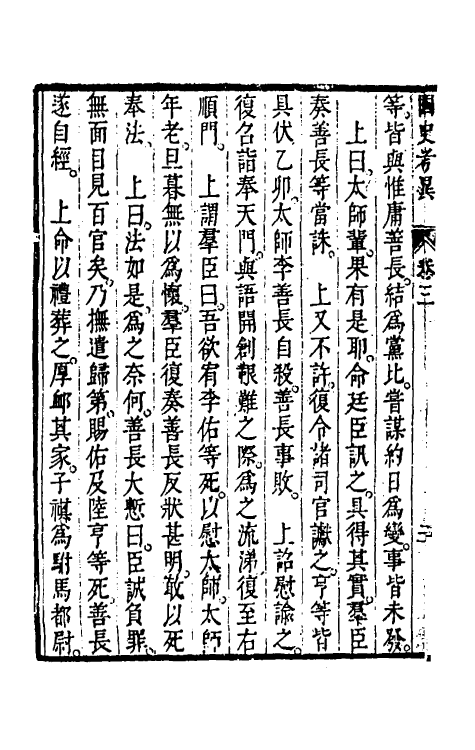 國史考異 卷三
等。皆與惟庸善長。結爲黨比。嘗謀約日爲變。事皆未發。
上曰。太師輩。果有是耶。命廷臣訊之。具得其實。羣臣
奏善長等當誅。 上又不許。復令諸司官讞之。亨等皆
具伏乙卯。太師李善長自殺。善長事敗。 上詔慰諭之。
復召詣奉天門。與語開創艱難之際。爲之流涕。復至右
順門。 上謂羣臣曰。吾欲宥李佑等死。以慰太師。太師
年老。旦暮無以爲懷。羣臣復奏善長反狀甚明。敢以死
奉法。 上曰。法如是。爲之奈何。善長大慙曰。臣誠負罪。
無面目見百官矣。乃撫遣歸第。賜佑及陸亨等死。善長
遂自經。 上命以禮葬之。厚䘏其家。子祺爲駙馬都尉。